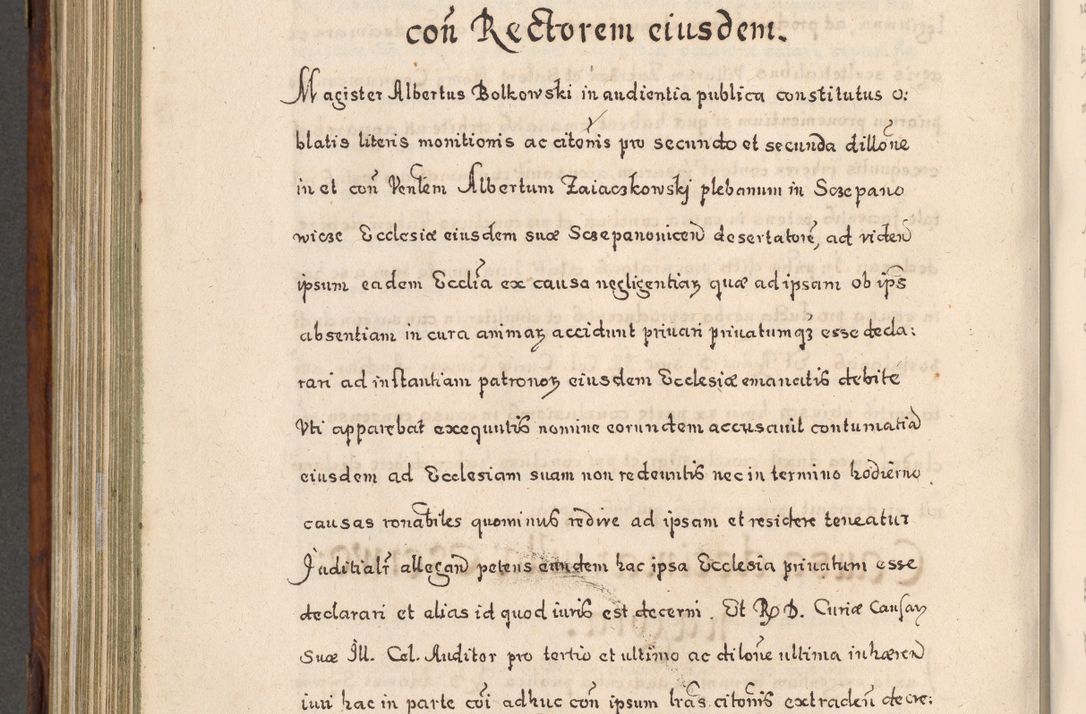 coñ Rectorem eiusdem.
Magister Albertus Bolkowski in audientia publica constitutus o:
blatis literis monitionis ac citoñis pro secundo et secunda dillõne
in et coñ Venlem Albertum Zaiaczkowskj plebanum in Sczepano
wicze Ecclesiæ eiusdem suæ Sczepanoniceñ desertatorẽ, ad videñ
ipsum eadem Eccliã ex causa negligentiaꝝ quæ ad ipsam ob ips̃
absentiam in cura animaꝝ accidunt priuari priuatumqꝫ esse decla:
rari ad instantiam patronoꝝ eiusdem Ecclesiæ emancitis debite
Vti apparebat exequutis nomine eorundem accusauit contumatiã
eiusdem ad Ecclesiam suam non redeuntis nec in termino hodierno
causas ronabiles quominus redire ad ipsam et residere teneatur
Juditialr̃ allegañ petens eundem hac ipsa Ecclesia priuatum esse
declarari et alias id quod iuris est decerni. Et R. D. Curiæ Causaꝝ
Suæ Ill. Cel. Auditor pro tertio et ultimo ac dilõne ultima inhæreñ
iuri hac in parte coĩ adhuc coñ ipsum lrãs citonis̃ extradeñ decre: